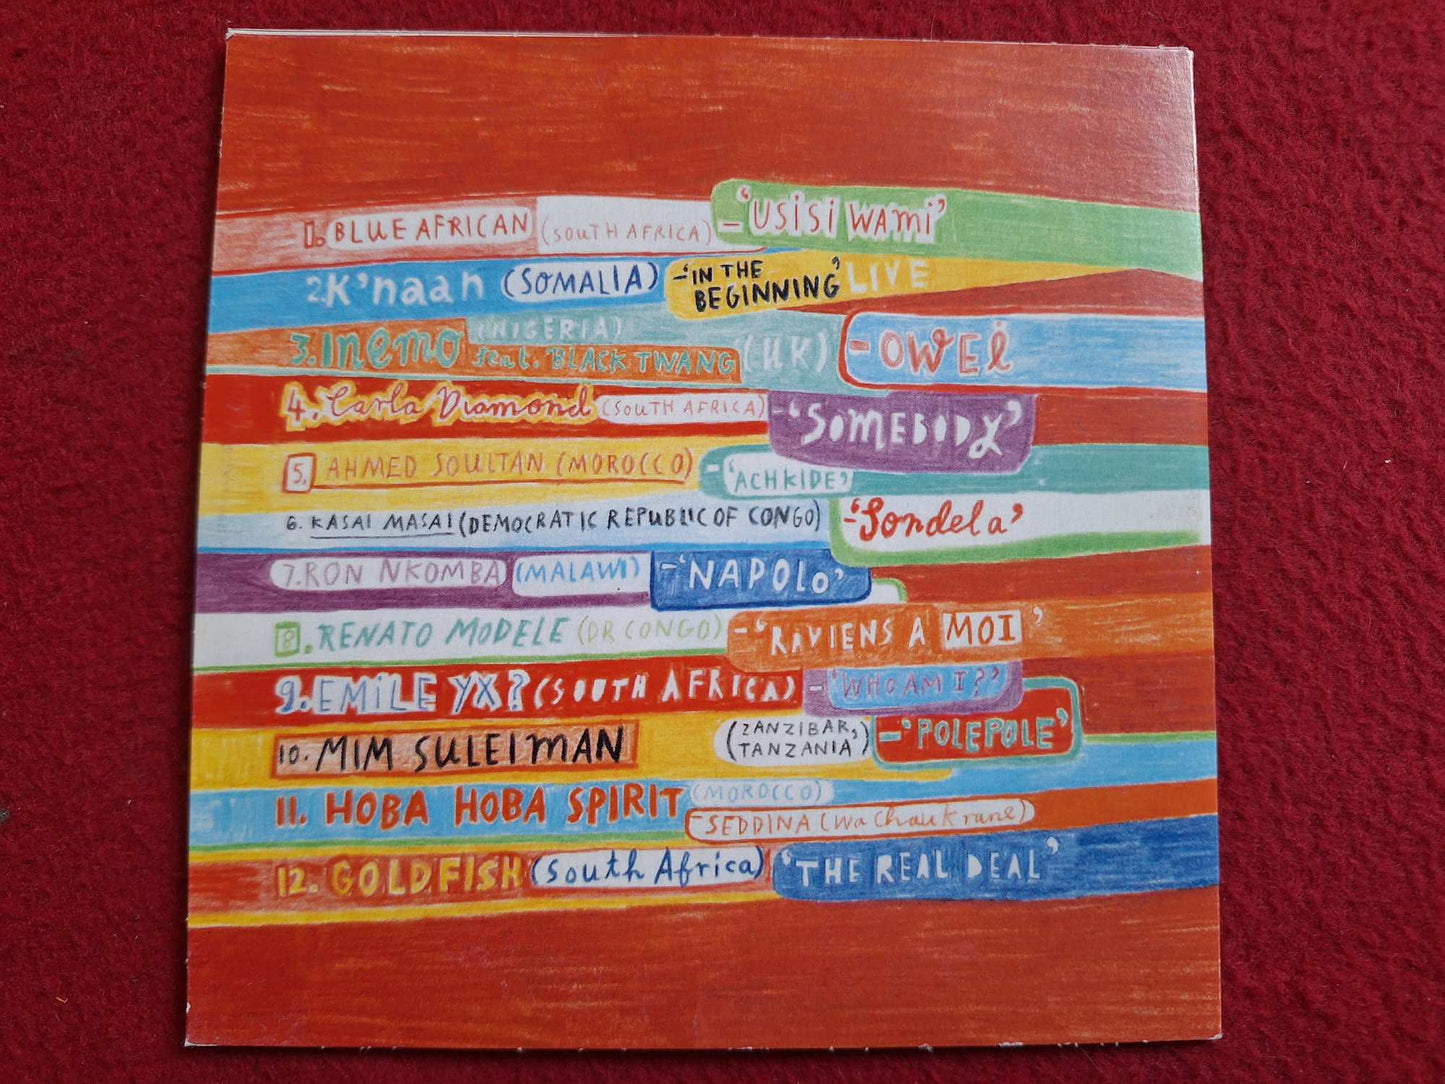 1. BLUE AFRICAN (SOUTH AFRICA) - 'USISI WAMI'
2. K'naan (SOMALIA) - 'IN THE BEGINNING' LIVE
3. Inemo (NIGERIA) feat. BLACK TWANG (UK) - OWEI
4. Carla Diamond (SOUTH AFRICA) - 'SOMEBODY'
5. AHMED SOULTAN (MOROCCO) - 'ACHKIDE'
6. KASAI MASAI (DEMOCRATIC REPUBLIC OF CONGO) - 'Sondela'
7. RON NKOMBA (MALAWI) - 'NAPOLO'
8. RENATO MODELE (DR CONGO) - 'RAVIENS A MOI'
9. EMILE YX? (SOUTH AFRICA) - 'WHO AM I?'
10. MIM SULEIMAN (ZANZIBAR, TANZANIA) - 'POLEPOLE'
11. HOBA HOBA SPIRIT (MOROCCO) - SEDDINA (wa chauk rane)
12. GOLDFISH (South Africa) 'THE REAL DEAL'